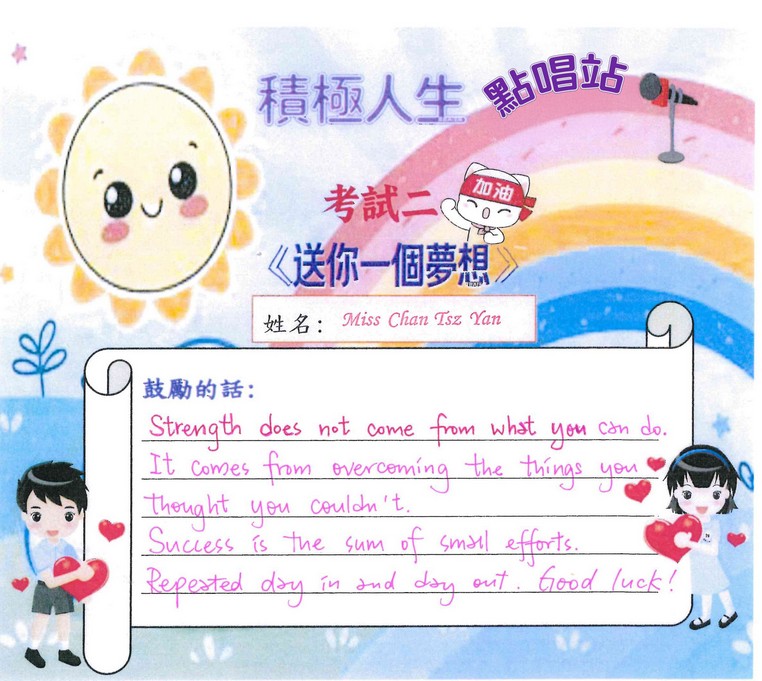 積極人生 點唱站
考試二
加油
《送你一個夢想》
姓名： Miss Chan Tsz Yan
鼓勵的話：
Strength does not come from what you can do.
It comes from overcoming the things you
thought you couldn't.
Success is the sum of small efforts.
Repeated day in and day out. Good luck!